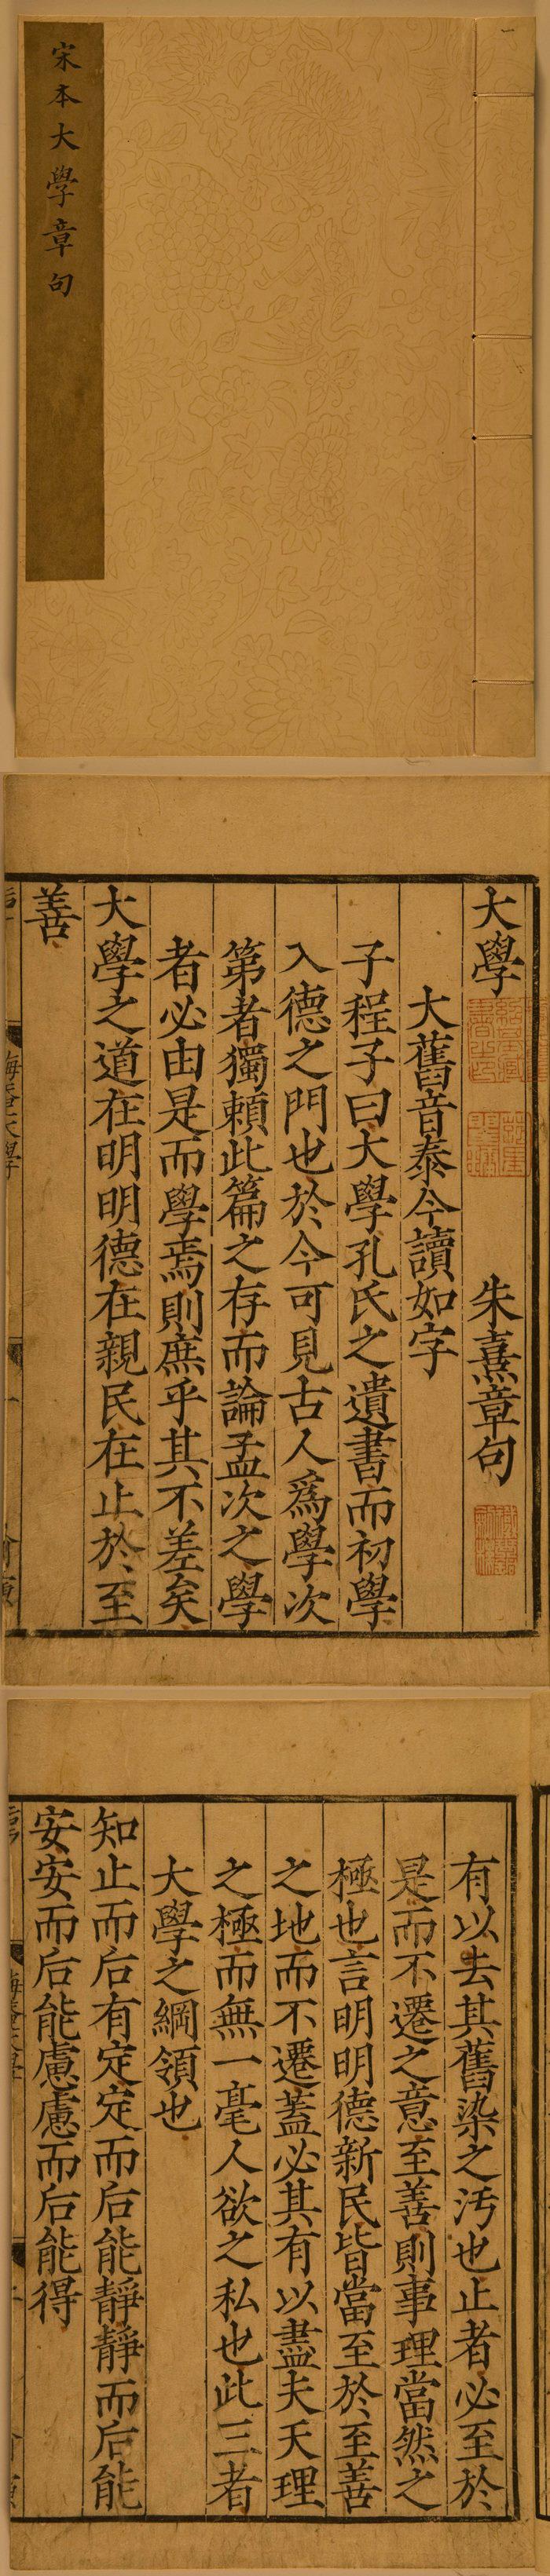 宋本大學章句
大學 朱熹章句
大舊音泰今讀如字
子程子曰大學孔氏之遺書而初學
入德之門也於今可見古人爲學次
第者獨賴此篇之存而論孟次之學
者必由是而學焉則庶乎其不差矣
大學之道在明明德在親民在止於至
善
有以去其舊染之汚也止者必至於
是而不遷之意至善則事理當然之
極也言明明德新民皆當至於至善
之地而不遷蓋必其有以盡夫天理
之極而無一毫人欲之私也此三者
大學之綱領也
知止而后有定定而后能靜靜而后能
安安而后能慮慮而后能得